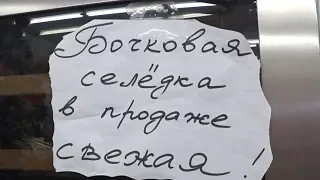 Бочковая
селёдка
в продаже
свежая!